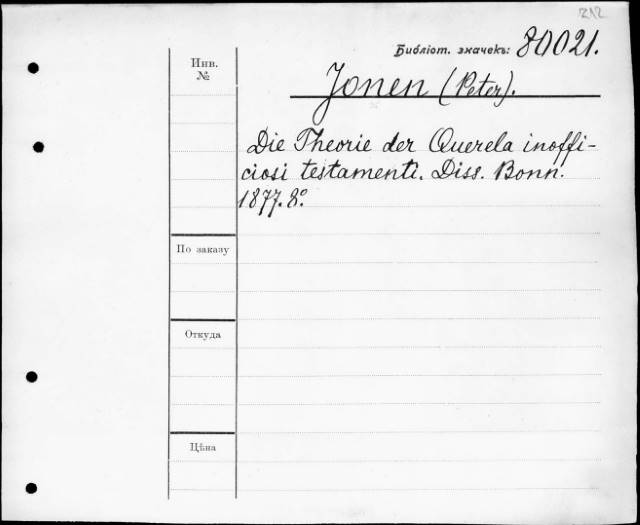 212
Библіот. значекъ: 80021.
Инв.
№
Jonen (Peter).
Die Theorie der Querela inoffi-
ciosi testamenti. Diss. Bonn.
1877. 8°.
По заказу
Откуда
Цѣна